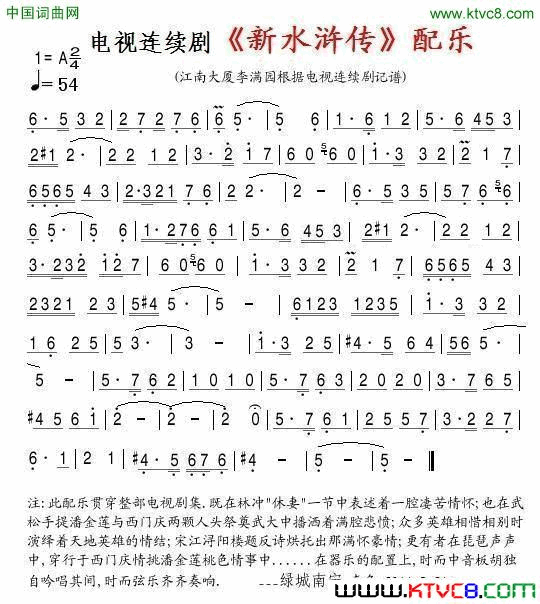 中国词曲网
www.ktvc8.com
电视连续剧《新水浒传》配乐
1=A 2/4
♩=54
(江南大厦李满园根据电视连续剧记谱)
6· 5 3 2 | 2 7 2 7 6 | 6 5· | 5 6 | 1· 6 1 2 | 5· 6 4 5 3 |
2 #1 2· | 2 2 1 2 | 3· 2 1 7 | 6 0 5 6 0 | 1· 3 3 2 | 2 1 7 |
6 5 6 5 4 3 | 2·3 2 1 7 6 | 2 2· | 2 - | 6· 5 3 5 | 5 7 6 5 6 |
6 5· | 5 6 | 1·2 7 6 6 1 | 5· 6 4 5 3 | 2 #1 2· | 2 6 |
3·2 3 2 1 2 7 | 6 0 5 6 0 | 1· 3 3 2 | 2 1 7 | 6 5 6 5 4 3 |
2 3 2 1 2 1 | 5 #4 5· | 5 - | 6 1 2 3 1 2 3 5 | 2 3 2 1 6 |
1 6 2 5 | 1· 3 2 6 | 1 2 3 5 | 1 - | 5· 6 4 3 | 2 5 |
5 - | 5· 7 6 2 | 1 0 1 0 | 5· 7 6 2 | 2 0 2 0 | 3· 2 1 3 |
#4 5 6 1 | 2 - | 2 - | 2 0 | 5 7 6 1 | 2 5 5 7 | 3· 2 1 2 |
6· 1 | 2 1 | #4· 5 6 6 5 | #4 5 | 5 - | 5 - ‖
注: 此配乐贯穿整部电视剧集. 既在林冲"休妻"一节中表述着一腔凄苦情怀; 也在武
松手提潘金莲与西门庆两颗人头祭奠武大中播洒着满腔悲愤; 众多英雄相惜相别时
演绎着天地英雄的情结; 宋江浔阳楼题反诗烘托出那满怀豪情; 更有者在琵琶声声
中, 穿行于西门庆情挑潘金莲桃色情事中......在器乐的配置上, 时而中音板胡独
自吟唱其间, 时而弦乐齐齐奏响. ---绿城南宁
www.KTVC8.com